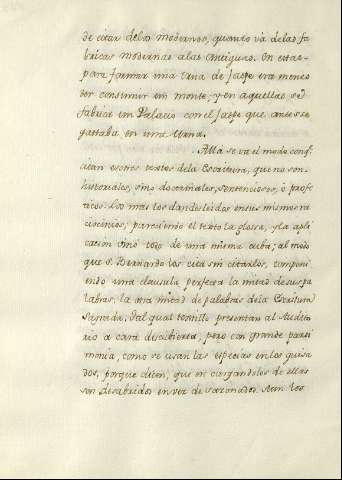 de citar delos modernos, quanto vá delas fa
bricas modernas alas Antiguas. En estas
para formar una Urna de Jaspe era menes
ter consumir un monte, y en aquellas se
fabríca un Palacio con el Jaspe que antes se
gastaba en una Urna.
Allá se va el modo con q̃
citan essotros textos dela Escritura, que no son
historiales, sino doctrinales, sentenciosos, ò profe
ticos. Los mas los dan desleidos en sus mismos ra
ciocinios, pareciendo el texto la glossa, y la apli
cación vino todo de una misma cuba; al modo
que S. Bernardo los cita sin citarlos, componi
endo una clausula perfecta la mitad de sus pa
labras, la otra mitad de palabras dela Escritura
Sagrada. Tal qual textillo presentan al Audito
rio a cara descubierta, pero con grande parsi
monia, como se usan las especias en los guisa
dos, porque dicen, que en cargandolos de ellas
son desabridos en vez de sazonados. Aun los